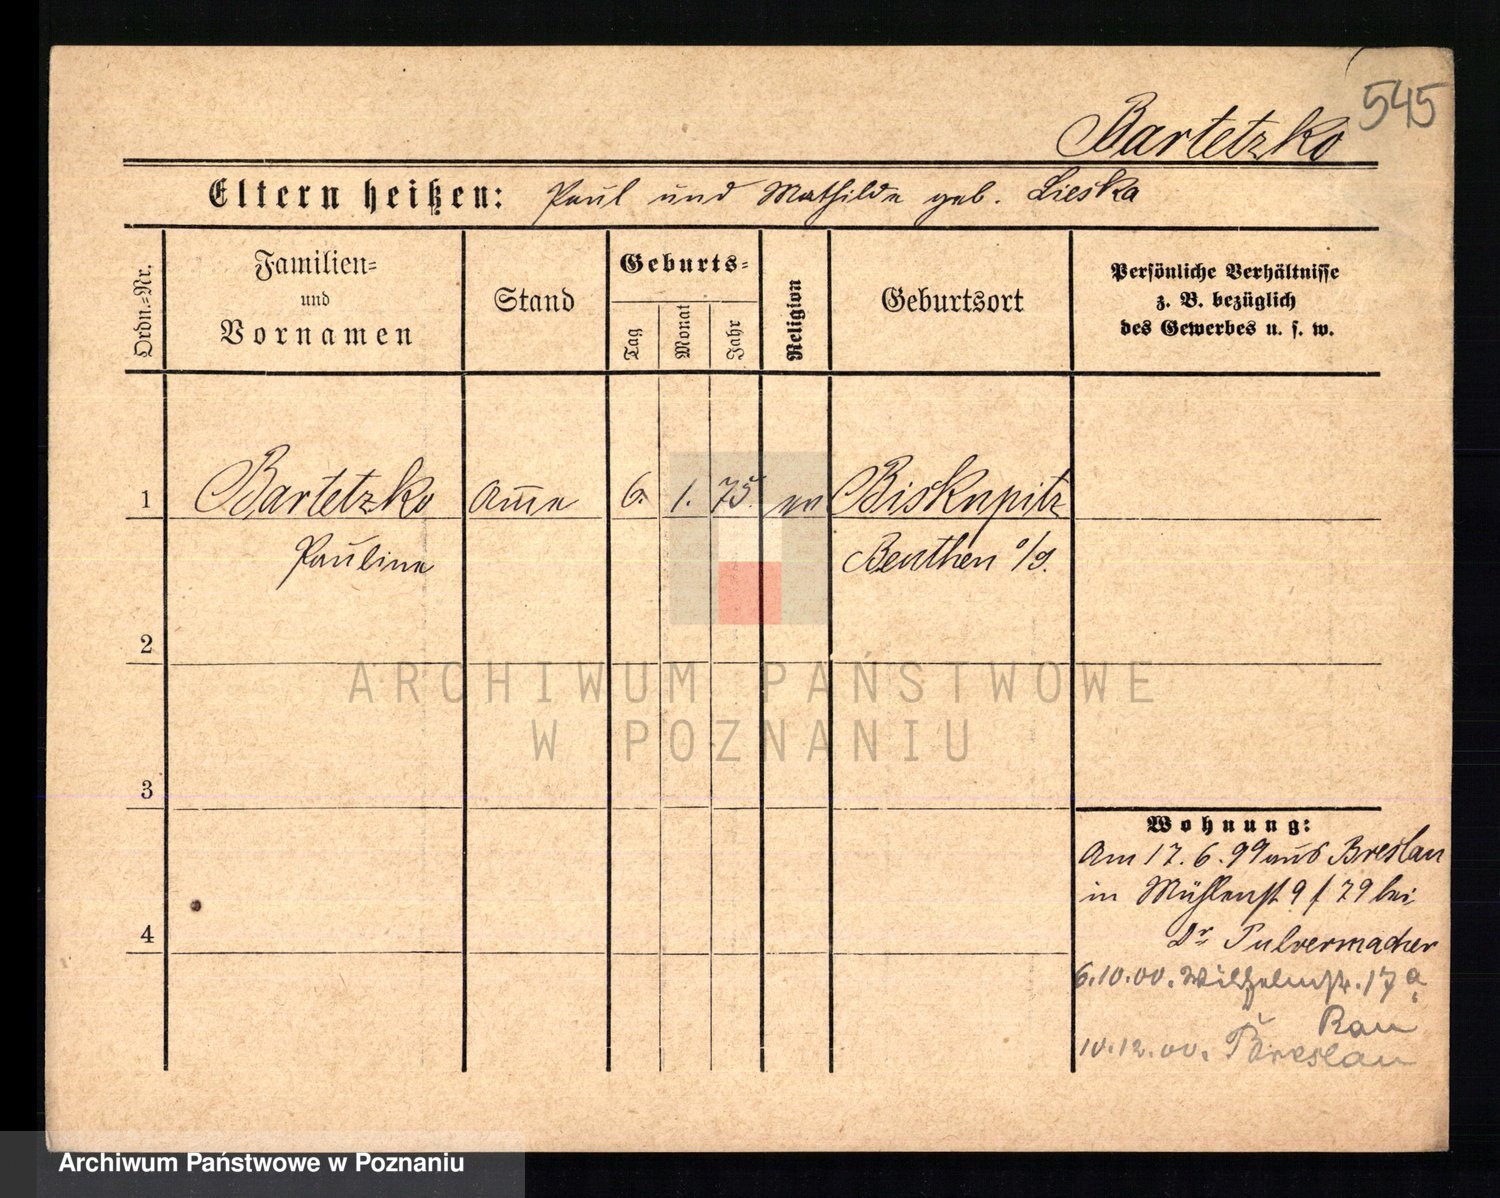 545
Bartetzko
Eltern heißen: Paul und Mathilde geb. Lieska
Ordn.-Nr.
Familien-
und
Vornamen
Stand
Geburts-
Tag
Monat
Jahr
Religion
Geburtsort
Persönliche Verhältnisse
z. B. bezüglich
des Gewerbes u. s. w.
1 Bartetzko Am̅e 6. 1. 75. ev Biskupitz
Pauline Beuthen o/s.
2
3
4
Wohnung:
Am 17. 6. 99 aus Breslau
in Mühlenst 9 / 79 bei
Dr Pulvermacher
6.10.00. Wilhelmstr. 17a
Rau
10.12.00. Breslau
ARCHIWUM PAŃSTWOWE
W POZNANIU
Archiwum Państwowe w Poznaniu